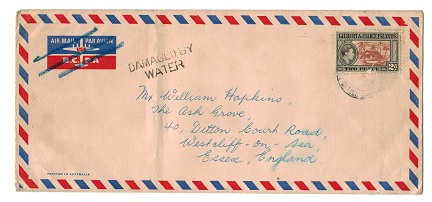 AIR MAIL PAR AVION
DAMAGED BY
WATER
GILBERT & ELLICE ISLANDS
TWO PENCE
2D
Mr William Hopkins,
The Ash Grove,
40, Ditton Court Road,
Westcliff-on-Sea,
Essex, England
PRINTED IN AUSTRALIA